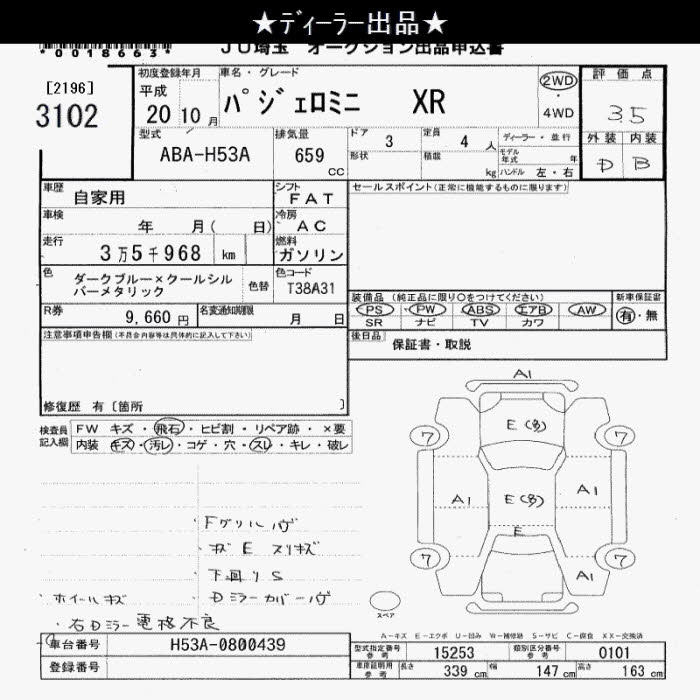 ★ディーラー出品★
*0018663*
JU埼玉 オークション出品申込書
[2196]
3102
初度登録年月
平成
20 10月
車名・グレード
パジェロミニ XR
2WD
・
4WD
評価点
3.5
外装 内装
D B
型式
ABA-H53A
排気量
659
cc
ドア 3
形状
定員 4 人
積載 kg
ディーラー・並行
モデル年式 年
ハンドル 左・右
車歴 自家用
シフト FAT
セールスポイント(正常に機能するものに限ります)
車検 年 月( 日)
冷房 AC
走行 3万5千968 km
燃料 ガソリン
色 ダークブルー×クールシル
バーメタリック
色替
色コード
T38A31
R券 9,660 円
名変通知期限 月 日
装備品(純正品に限り○をつけてください)
新車保証書
PS・PW・ABS・エアB・AW
有・無
SR ナビ TV カワ
後日品 保証書・取説
注意事項申告欄(不具合内容等は具体的に記入して下さい)
修復歴 有〔箇所 〕
検査員
記入欄
FW キズ・飛石・ヒビ割・リペア跡・×要
内装 キズ・汚レ・コゲ・穴・スレ・キレ・破レ
・Fグリルハゲ
・ボズE スリキズ
・下回りS
・ホイールキズ ・Dミラーカバーハゲ
・右Dミラー電格不良
A1
E(多)
ワ ワ
A1 E(多) A1
E
ワ ワ
A1
スペア
A-キズ E-エクボ U-凹み W-補修跡 S-サビ C-腐食 XX-交換済
車台番号 H53A-0800439
登録番号
型式指定番号
参考
15253
類別区分番号
参考
0101
車庫証明用
参考
長さ 339 cm 幅 147 cm 高さ 163 cm